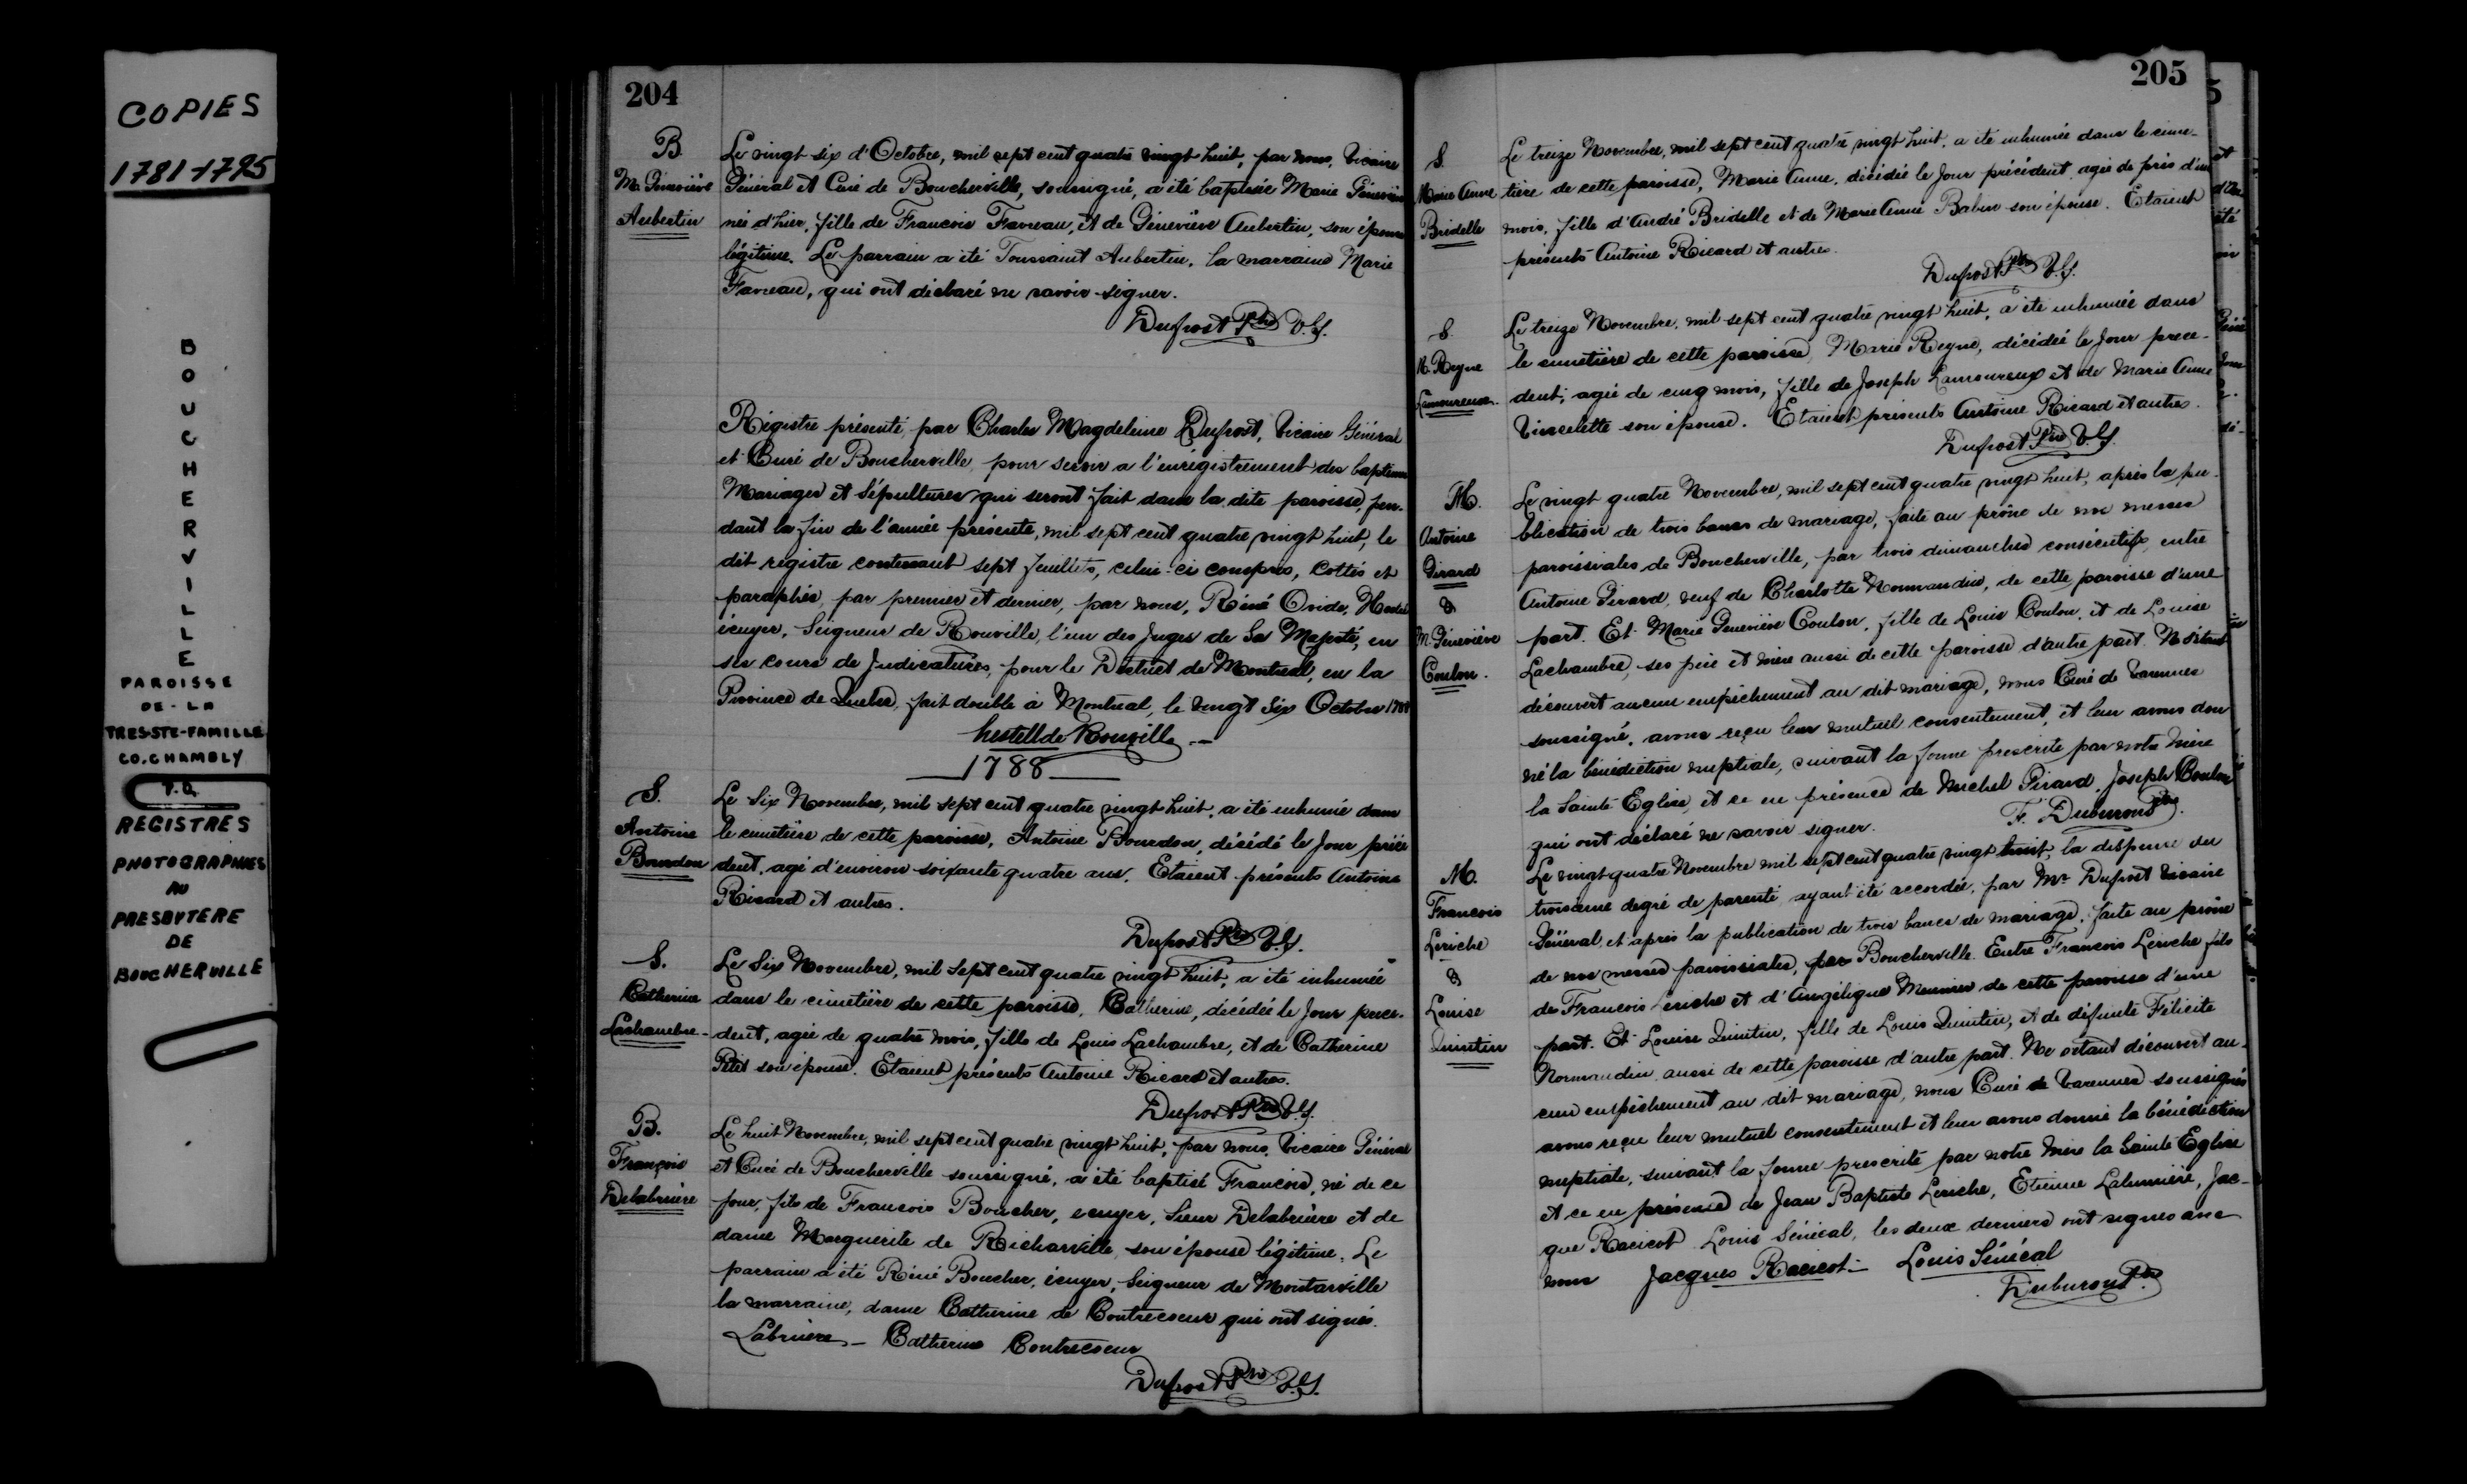 COPIES
1781-1795
BOUCHERVILLE
PAROISSE
DE-LA
TRES-STE-FAMILLE
CO. CHAMBLY
P.Q.
REGISTRES
PHOTOGRAPHIES
AU
PRESBYTERE
DE
BOUCHERVILLE
204
B
M. Géneviève
Aubertin
Le vingt-six d'Octobre, mil sept cent quatre vingt-huit, par nous, Vicaire
Général et Curé de Boucherville, soussigné, a été baptisée Marie Géneviève
née d'hier, fille de Francois Favreau, et de Géneviève Aubertin, son épouse
légitime. Le parrain a été Toussaint Aubertin, la marraine Marie
Favreau, qui ont déclaré ne savoir signer.
Dufrost Ptre V.G.
Régistre présenté par Charles Magdeleine Dufrost, Vicaire Général
et Curé de Boucherville, pour servir a l'enrégistrement des baptemes
Mariages et Sépultures qui seront fait dans la dite paroisse, pen-
dant la fin de l'année présente, mil sept cent quatre vingt huit, le
dit registre contenant sept feuillets, celui-ci compris, Cottés et
paraphés, par premier et dernier, par nous, Réné Ovide, Hertel
écuyer, Seigneur de Rouville, l'un des Juges de Sa Majesté, en
ses cours de Judicatures, pour le District de Montréal, en la
Province de Quebec, fait double à Montreal, le vingt Six Octobre 1788
hertel de Rouville
1788
S.
Antoine
Bourdon
Le Six Novembre, mil sept cent quatre vingt huit, a été inhumé dans
le cimetière de cette paroisse, Antoine Bourdon, décédé le Jour précé
dent, agé d'environ soixante quatre ans. Etaient présents Antoine
Ricard et autres.
Dufrost Ptre V.G.
S.
Catherine
Lachambre
Le Six Novembre, mil sept cent quatre vingt huit, a été inhumée
dans le cimetière de cette paroisse, Catherine, décédée le Jour préce-
dent, agée de quatre mois, fille de Louis Lachambre, et de Catherine
Petit son épouse. Etaient présents Antoine Ricard et autres.
Dufrost Ptre V.G.
B.
François
Delabruère
Le huit Novembre, mil sept cent quatre vingt huit, par nous, Vicaire Général
et Curé de Boucherville soussigné, a été baptisé Francois, né de ce
jour, fils de Francois Boucher, ecuyer, Sieur Delabruère et de
dame Marguerite de Richarville, son épouse légitime. Le
parrain a été Réné Boucher, écuyer, Seigneur de Montarville
la marraine, dame Catherine de Contrecoeur qui ont signés.
Labruère - Catherine Contrecoeur
Dufrost Ptre V.G.
205
S.
Marie Anne
Bridelle
Le treize Novembre, mil sept cent quatre vingt huit, a été inhumée dans le cime-
tière de cette paroisse, Marie Anne, décédée le Jour précédent, agée de près d'un
mois, fille d'André Bridelle et de Marie Anne Babin son épouse. Etaient
présents Antoine Ricard et autres.
Dufrost Ptre V.G.
S.
M. Reyne
Lamoureux
Le treize Novembre, mil sept cent quatre vingt huit, a été inhumée dans
le cimetière de cette paroisse, Marie Reyne, décédée le Jour prece-
dent, agée de cinq mois, fille de Joseph Lamoureux et de Marie Anne
Vincelette son épouse. Etaient présents Antoine Ricard et autres.
Dufrost Ptre V.G.
M.
Antoine
Girard
&
M. Géneviève
Coulon.
Le vingt quatre Novembre, mil sept cent quatre vingt huit, après la pu-
blication de trois bancs de mariage, faite au prône de nos messes
paroissiales de Boucherville, par trois dimanches consécutifs, entre
Antoine Girard, veuf de Charlotte Normandin, de cette paroisse d'une
part. Et Marie Géneviève Coulon, fille de Louis Coulon, et de Louise
Lachambre, ses père et mère aussi de cette paroisse d'autre part. N'étant
découvert aucun empêchement au dit mariage, nous Curé de Varennes
soussigné, avons reçu leur mutuel consentement, et leur avons don
né la bénédiction nuptiale, suivant la forme prescrite par notre Mère
la Sainte Eglise, et ce en présence de Michel Girard, Joseph Coulon
qui ont déclaré ne savoir signer.
F. Duburon Ptre.
M.
Francois
Leriche
&
Louise
Quintin
Le vingt-quatre Novembre mil sept cent quatre vingt huit, la dispense du
troisième degré de parenté, ayant été accordée, par Mr Dufrost Vicaire
Général, et après la publication de trois bancs de mariage, faite au prône
de nos messes paroissiales, par Boucherville. Entre Francois Leriche fils
de Francois Leriche et d'Angélique Meunier de cette paroisse d'une
part. Et Louise Quintin, fille de Louis Quintin, et de défunte Félicité
Normandin, aussi de cette paroisse d'autre part. Ne s'étant découvert au-
cun empêchement au dit mariage, nous Curé de Varennes soussignés
avons reçu leur mutuel consentement et leur avons donné la bénédiction
nuptiale, suivant la forme prescrite par notre Mère la Sainte Eglise
et ce en présence de Jean Baptiste Leriche, Etienne Lalumière, Jac-
que Racicot Louis Sénécal, les deux derniers ont signés avec
nous Jacques Racicot - Louis Sénécal
Duburon Ptre.